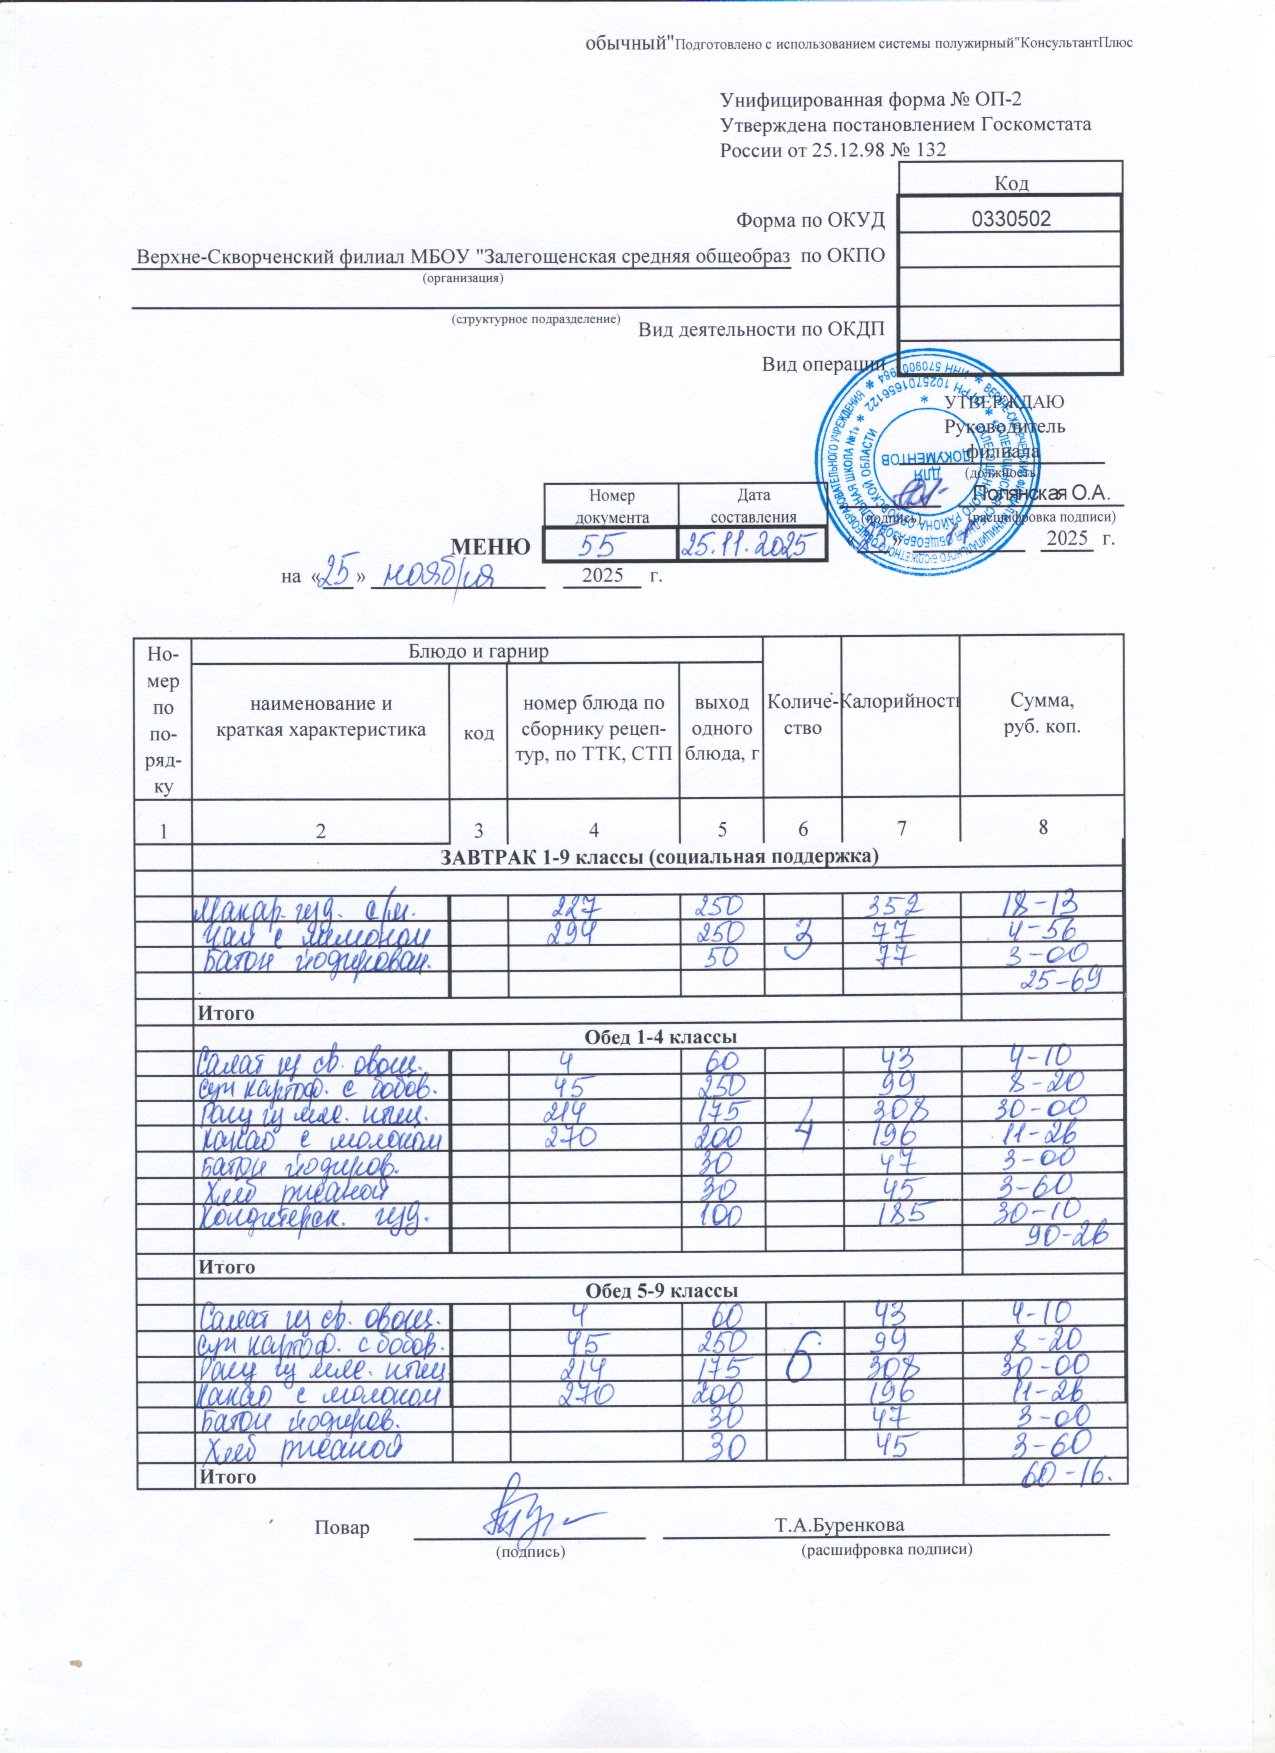 обычный"Подготовлено с использованием системы полужирный"КонсультантПлюс
Унифицированная форма № ОП-2
Утверждена постановлением Госкомстата
России от 25.12.98 № 132
Код
Форма по ОКУД 0330502
Верхне-Скворченский филиал МБОУ "Залегощенская средняя общеобраз по ОКПО
(организация)
(структурное подразделение)
Вид деятельности по ОКДП
Вид операции
УТВЕРЖДАЮ
Руководитель
филиала
(должность)
ДЛЯ ДОКУМЕНТОВ
Полянская О.А.
(подпись) (расшифровка подписи)
2025 г.
Номер документа Дата составления
МЕНЮ 55 25.11.2025
на «25» ноября 2025 г.
Но-мер по по-ряд-ку
Блюдо и гарнир
наименование и краткая характеристика
код
номер блюда по сборнику рецеп-тур, по ТТК, СТП
выход одного блюда, г
Количе-ство
Калорийность
Сумма, руб. коп.
1 2 3 4 5 6 7 8
ЗАВТРАК 1-9 классы (социальная поддержка)
Макар. изд. с/м. 227 250 352 18-13
Чай с лимоном 294 250 3 77 4-56
Батон йодирован. 50 77 3-00
25-69
Итого
Обед 1-4 классы
Салат из св. овощ. 4 60 43 4-10
Суп картоф. с бобов. 45 250 99 8-20
Рагу из мяс. птиц. 214 175 308 30-00
Какао с молоком 270 200 4 196 11-26
Батон йодиров. 30 47 3-00
Хлеб ржаной 30 45 3-60
Кондитерск. изд. 100 185 30-10
90-26
Итого
Обед 5-9 классы
Салат из св. овощ. 4 60 43 4-10
Суп картоф. с бобов. 45 250 6 99 8-20
Рагу из мяс. птиц 214 175 308 30-00
Какао с молоком 270 200 196 11-26
Батон йодиров. 30 47 3-00
Хлеб ржаной 30 45 3-60
Итого 60-16.
Повар Т.А.Буренкова
(подпись) (расшифровка подписи)